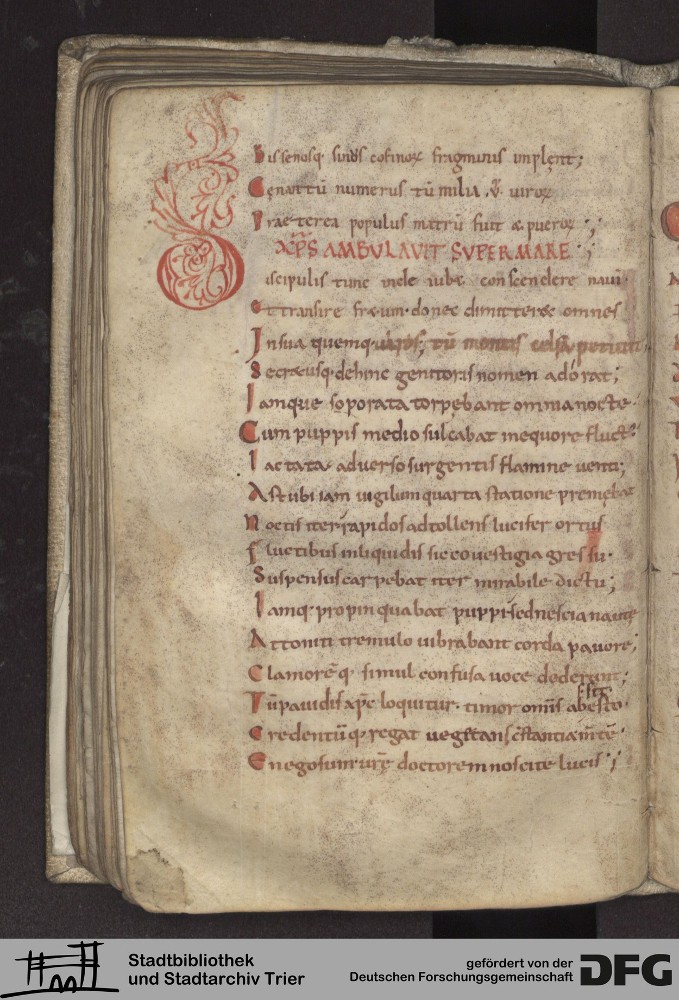 Bissenosq; suidos cofinorꝝ fragminis implent;
Cęnantū numerus tū milia .V. uirorꝝ
Praeterea populus matrū fuit & puerorꝝ;
XP̄S AMBULAVIT SUPER MARE;
Discipulis tunc inde iubet conscendere naui
Et transire fr&um. donec dimitter& omnes
In sua quemq; uiros; tū montis celsa petiuit
Secr&usq; dehinc genitoris nomen adorat;
Iamque soporata torpebant omnia nocte
Cum puppis medio sulcabat in equore fluct;
Iactata aduerso surgentis flamine uenti;
Ast ubi iam uigilum quarta statione premebat
Noctis iter rapidos adtollens lucifer ortus
Fluctibus in liquidis sicco uestigia gressu.
Suspensus carpebat iter mirabile dictu;
Iamq; propinquabat puppi sed nescia nautę
Attoniti tremulo uibrabant corda pauore;
Clamorēq; simul confusa uoce dederunt;
Tū pauidis xp̄c loquitur. timor omīs abesto
Credentūq; regat uegetans cōstantia m̄tē
En ego sum urm̄ doctorem noscite lucis;
Stadtbibliothek
und Stadtarchiv Trier
gefördert von der
Deutschen Forschungsgemeinschaft
DFG